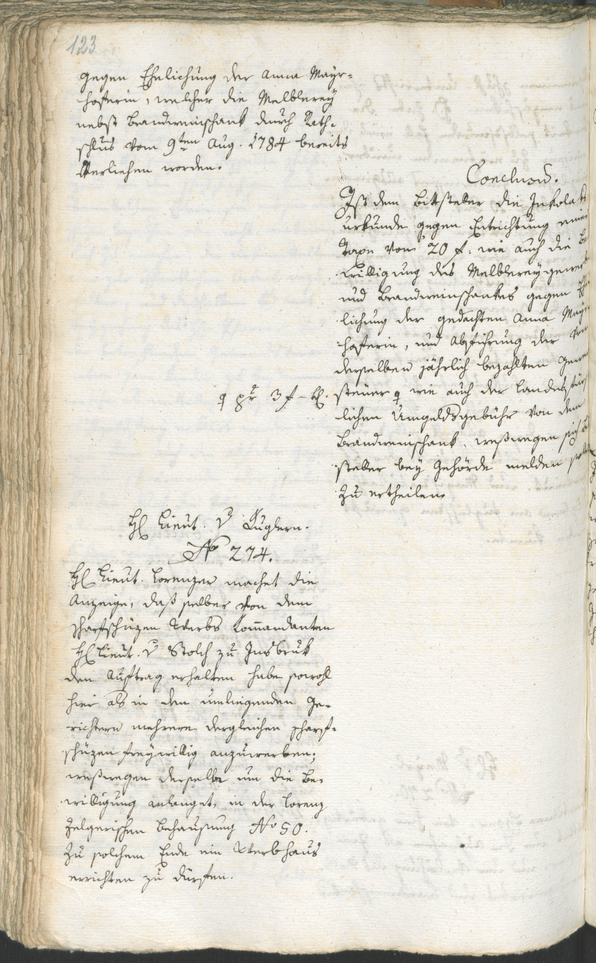 123
gegen Ehelichung der Anna Mayr-
hoferin, welcher die Melblerey
nebst Brandweinschank durch Rath-
schluß vom 9ten Aug. 1784 bereits
verliehen worden.
Conclusum.
Ist dem Bittsteller die Inkolats
urkunde gegen Entrichtung einer
Taxe vom 20 f. wie auch die Be
willigung des Melblereygewerbs
und Brandweinschankes gegen Ehe
lichung der gedachten Anna Mayr
hoferin, und Abführung der von
derselben jährlich bezahlten Gewerb
steuer wie auch der Landesfürst
lichen Umgeldsgebühr von dem
Brandweinschank, weßwegen sich
steller bey Gehörde melden solle
zu ertheilen.
pr 3 f
H Lieut. v Luglern.
No 274.
H Lieut. Lorenzer machet die
Anzeige, daß selber von dem
Scharfschüzen Werbs Commandanten
H Lieut. v Stolch zu Insbruk
den Auftrag erhalten habe sowohl
hier als in den umliegenden Ge-
richtern mehrere dergleichen Scharf-
schüzen freywillig anzuwerben;
weßwegen derselbe um die Be-
willigung anlanget, in der Lorenz
Behausung No 50.
zu solchem Ende ein Werbhaus
errichten zu dürfen.